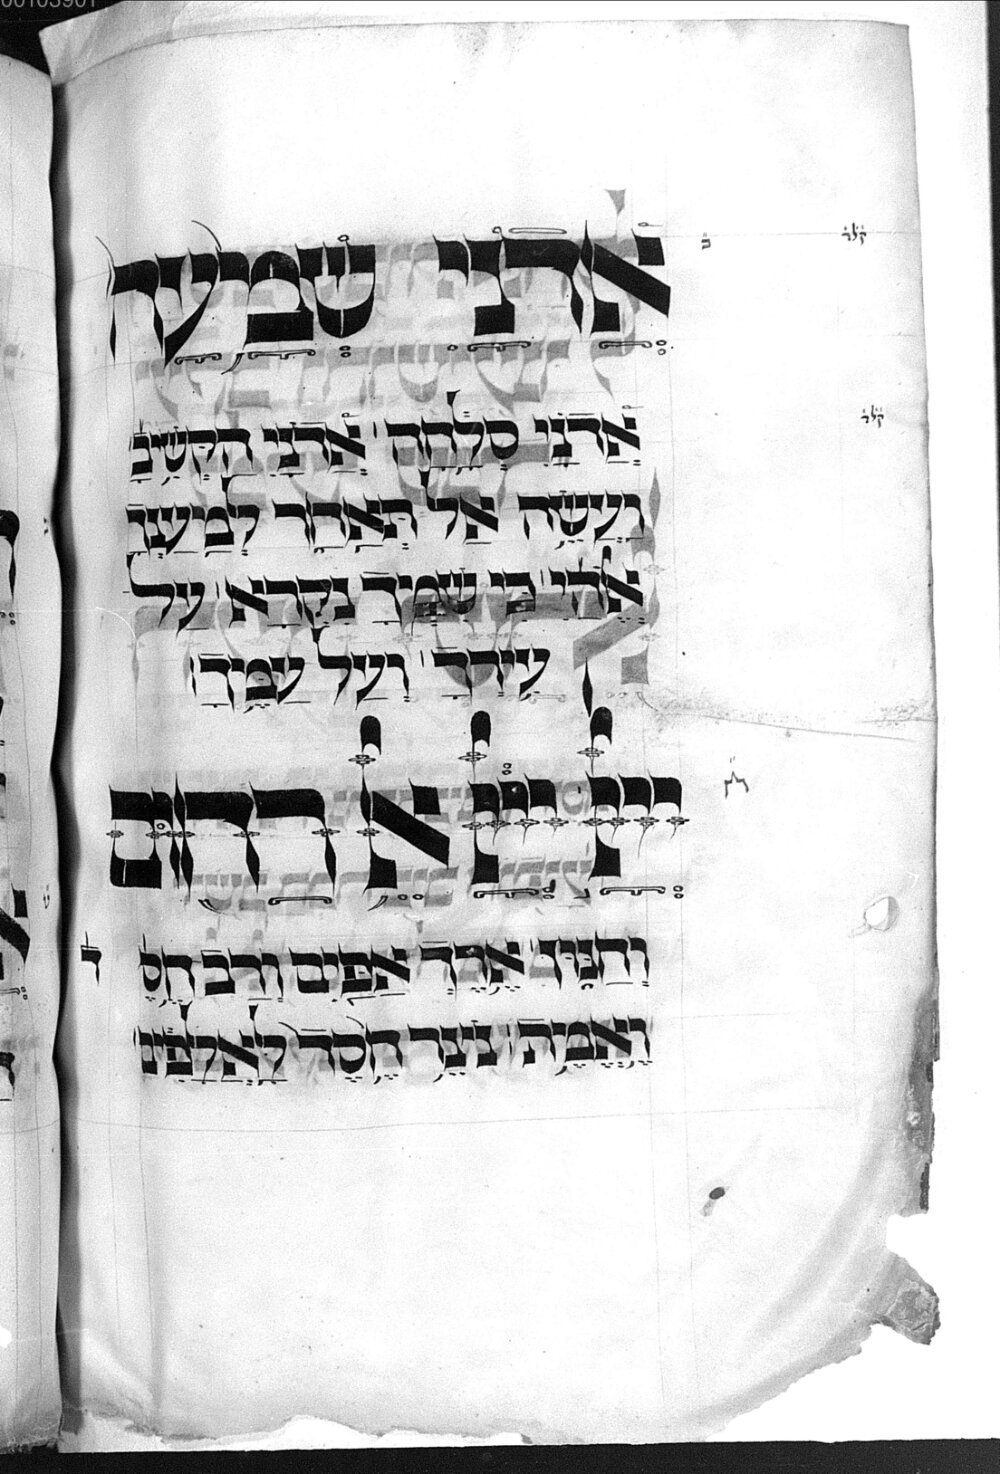 אֲדֹנָי שְׁמָעָה
אֲדֹנָי סְלָחָה אֲדֹנָי הַקְשִׁיבָ
וַעֲשֵׂה אַל תְּאַחַר לְמַעַנְךָ
אֱלֹהַי כִּי שִׁמְךָ נִקְרָא עַל
עִירְךָ וְעַל עַמֶּךָ
יְיָ יְיָ אֵל רַחוּם
וְחַנּוּן אֶרֶךְ אַפַּיִם וְרַב חֶסֶ ד
וֶאֱמֶת נֹצֵר חֶסֶד לָאֲלָפִים